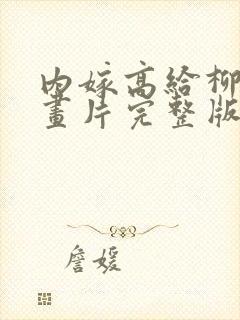 内嫁高给柳
畫片完整版
詹媛